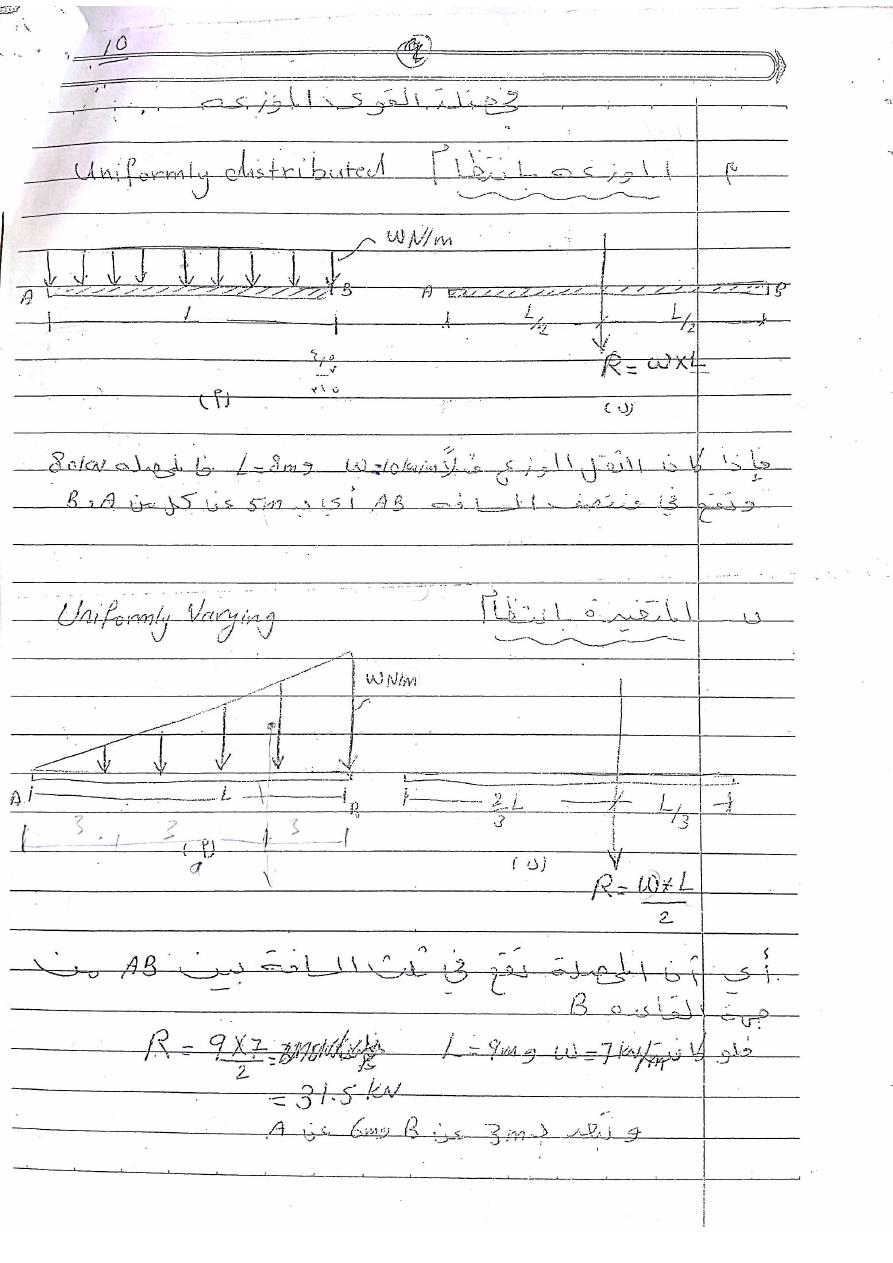 10
9
محصلة القوى الموزعه
م الموزعه بانتظام Uniformly distributed
W N/m
A B A B
L L/2 L/2
R = W×L
(م) (ن)
فإذا كان الثقل الموزع مثلاً W=10kN/m و L=8m فالمحصله 80kN
وتقع في منتصف المسافه AB أي بـ 5m عن كل من A و B
ب المتغيرة بانتظام Uniformly Varying
W N/m
A L B 2/3 L L/3
3 3 3
(م) (ن)
a
R = W×L/2
أي أن المحصلة تقع في ثلث المسافة بين AB من
جهة القاعده B
فلو كانت W=7kN/m و L=9m R = 9×7/2 =
= 31.5 kN
و تبعد بـ 3m عن B و 6m عن A